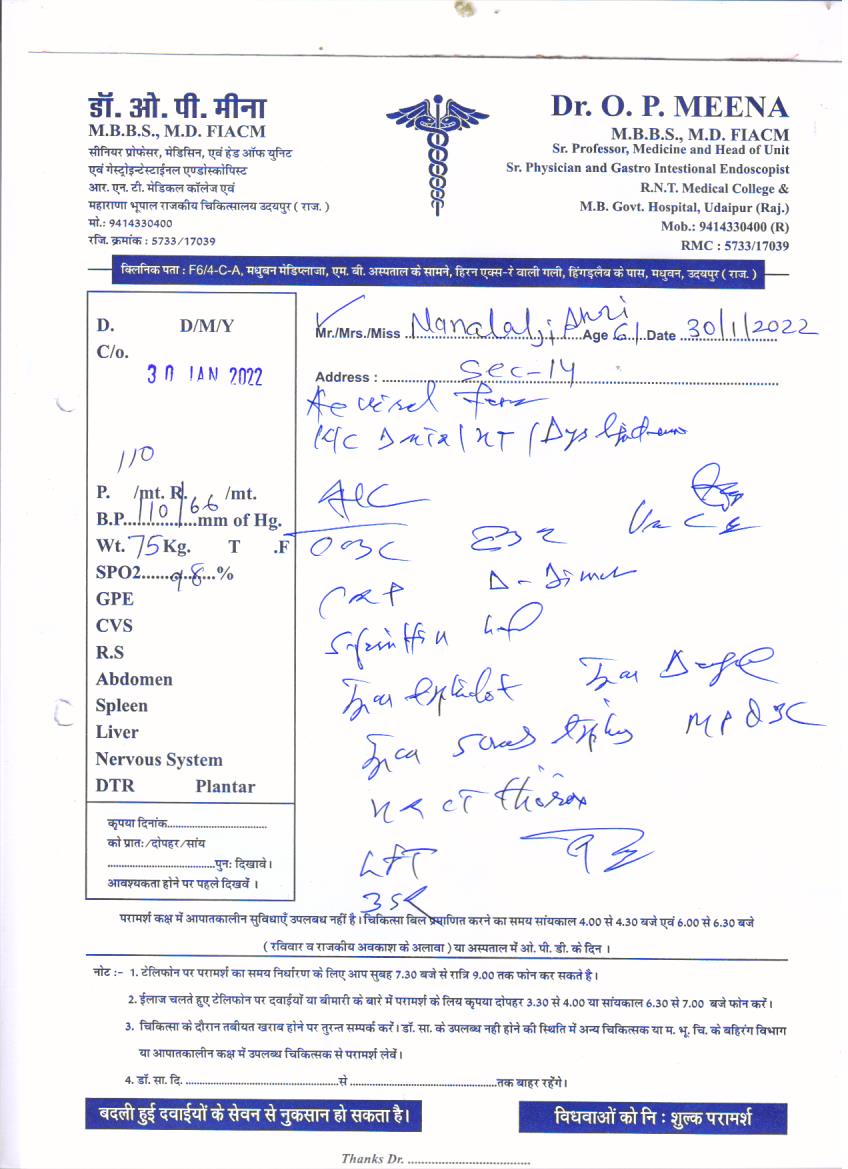 डॉ. ओ. पी. मीना
M.B.B.S., M.D. FIACM
सीनियर प्रोफेसर, मेडिसिन, एवं हेड ऑफ युनिट
एवं गेस्ट्रोइन्टेस्टाईनल एण्डोस्कोपिस्ट
आर. एन. टी. मेडिकल कॉलेज एवं
महाराणा भूपाल राजकीय चिकित्सालय उदयपुर ( राज. )
मो.: 9414330400
रजि. क्रमांक : 5733/17039
Dr. O. P. MEENA
M.B.B.S., M.D. FIACM
Sr. Professor, Medicine and Head of Unit
Sr. Physician and Gastro Intestional Endoscopist
R.N.T. Medical College &
M.B. Govt. Hospital, Udaipur (Raj.)
Mob.: 9414330400 (R)
RMC : 5733/17039
क्लिनिक पता : F6/4-C-A, मधुबन मेडिप्लाजा, एम. बी. अस्पताल के सामने, हिरन एक्स-रे वाली गली, हिंगड़लैब के पास, मधुवन, उदयपुर ( राज. )
D. D/M/Y
C/o.
30 JAN 2022
110
P. /mt. R. /mt.
B.P. 110/66 mm of Hg.
Wt. 75 Kg. T .F
SPO2 98 %
GPE
CVS
R.S
Abdomen
Spleen
Liver
Nervous System
DTR Plantar
कृपया दिनांक
को प्रातः/दोपहर/सांय
पुनः दिखावे।
आवश्यकता होने पर पहले दिखवें ।
Mr./Mrs./Miss Nanalalji Age 61 Date 30/1/2022
Address : Sec-14
K/C / HT /
CRP D-Dimer
HR CT thorax
LFT
परामर्श कक्ष में आपातकालीन सुविधाएँ उपलबध नहीं है। चिकित्सा बिल प्रमाणित करने का समय सांयकाल 4.00 से 4.30 बजे एवं 6.00 से 6.30 बजे
( रविवार व राजकीय अवकाश के अलावा ) या अस्पताल में ओ. पी. डी. के दिन ।
नोट :- 1. टेलिफोन पर परामर्श का समय निर्धारण के लिए आप सुबह 7.30 बजे से रात्रि 9.00 तक फोन कर सकते है।
2. ईलाज चलते हुए टेलिफोन पर दवाईयों या बीमारी के बारे में परामर्श के लिय कृपया दोपहर 3.30 से 4.00 या सांयकाल 6.30 से 7.00 बजे फोन करें।
3. चिकित्सा के दौरान तबीयत खराब होने पर तुरन्त सम्पर्क करें। डॉ. सा. के उपलब्ध नही होने की स्थिति में अन्य चिकित्सक या म. भू. चि. के बहिरंग विभाग
या आपातकालीन कक्ष में उपलब्ध चिकित्सक से परामर्श लेवें।
4. डॉ. सा. दि. से तक बाहर रहेंगे।
बदली हुई दवाईयों के सेवन से नुकसान हो सकता है।
विधवाओं को नि : शुल्क परामर्श
Thanks Dr.